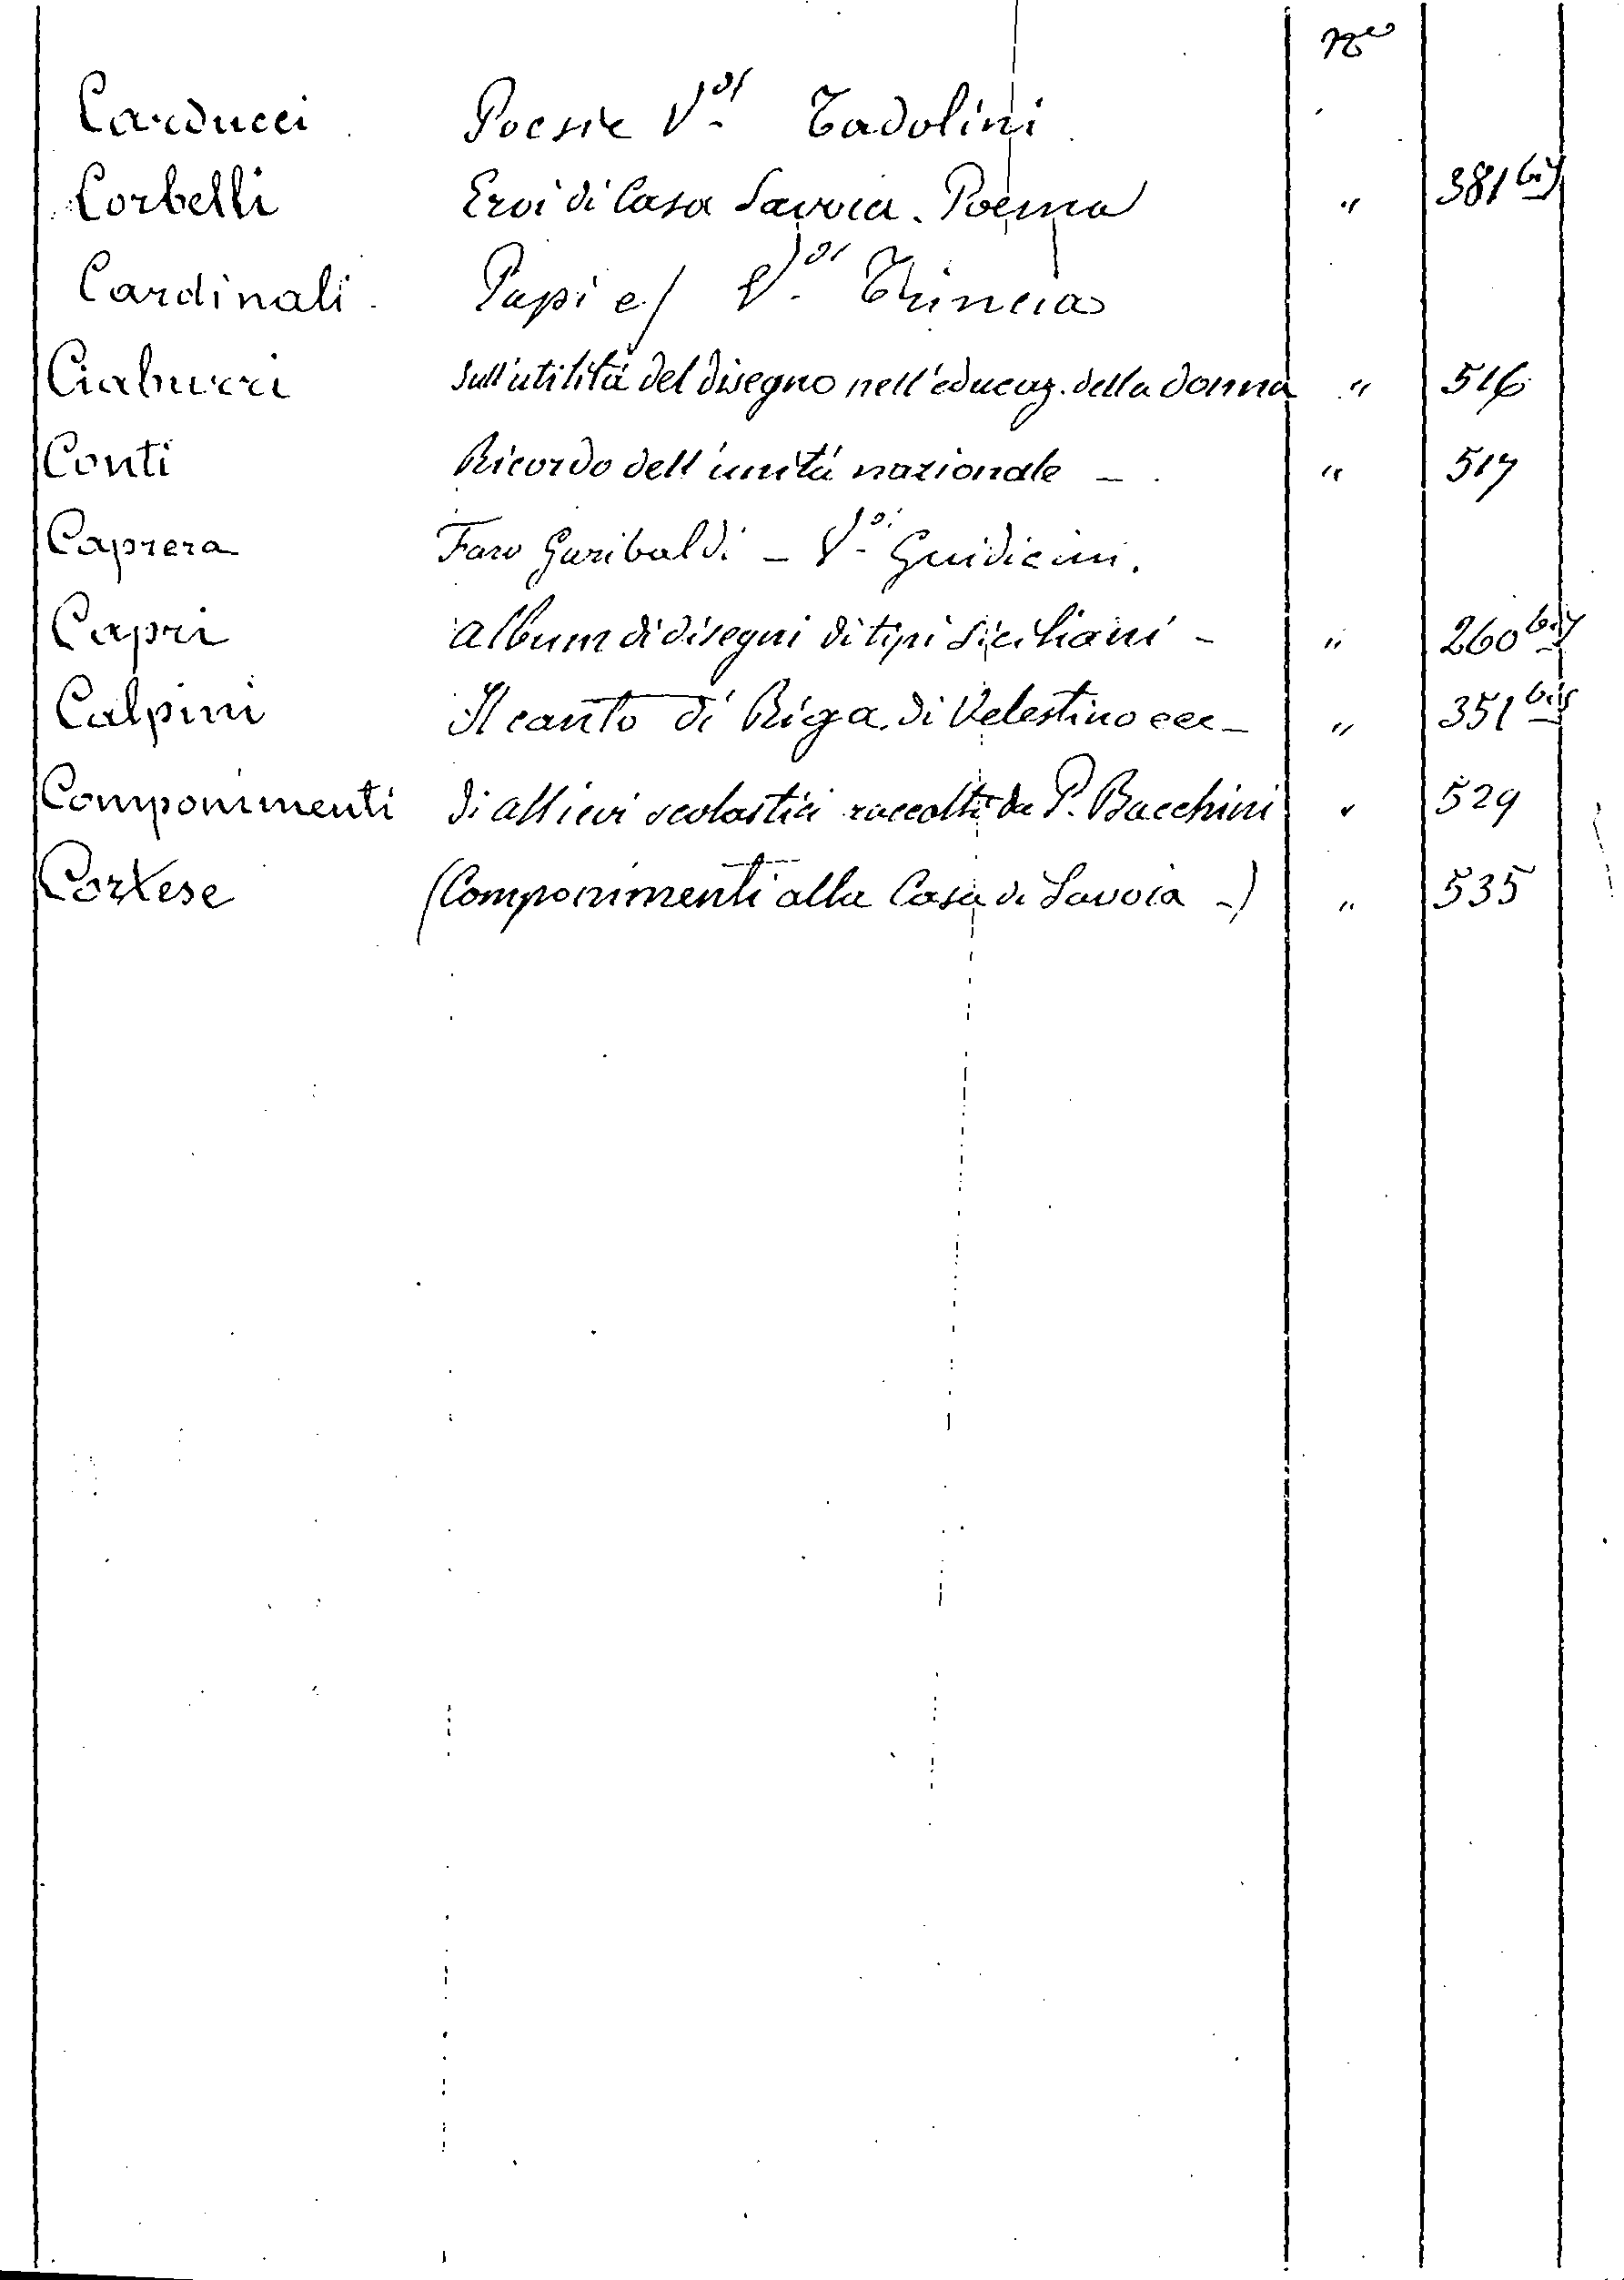 No
Carducci Poesie Vdi Tadolini
Corbelli Eroi di Casa Savoia. Poema " 381 bis
Cardinali Papi e/ Vdi Thincia
Ciabucci Sull'utilità del disegno nell'educaz. della donna " 516
Conti Ricordo dell'unità nazionale - " 517
Caprera Faro Garibaldi - Vdi Guidicini.
Capri Album di disegni di tipi siciliani - " 260 bis
Calpini Il canto di Riga di Velestino ecc - " 351 bis
Componimenti di allievi scolastici raccolti da P. Bacchini " 529
Cortese (Componimenti alla Casa di Savoia -) " 535